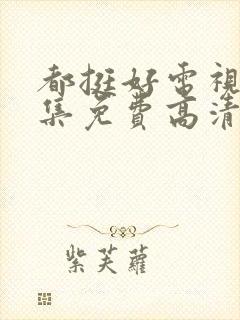 都挺好電視
集免費高清
紫芙蘿